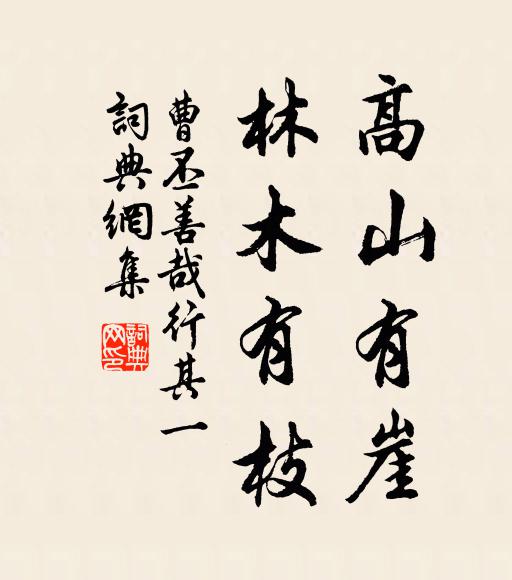 高山有崖
林木有枝
曹丕善哉行其一
詞典網集
詞典網印